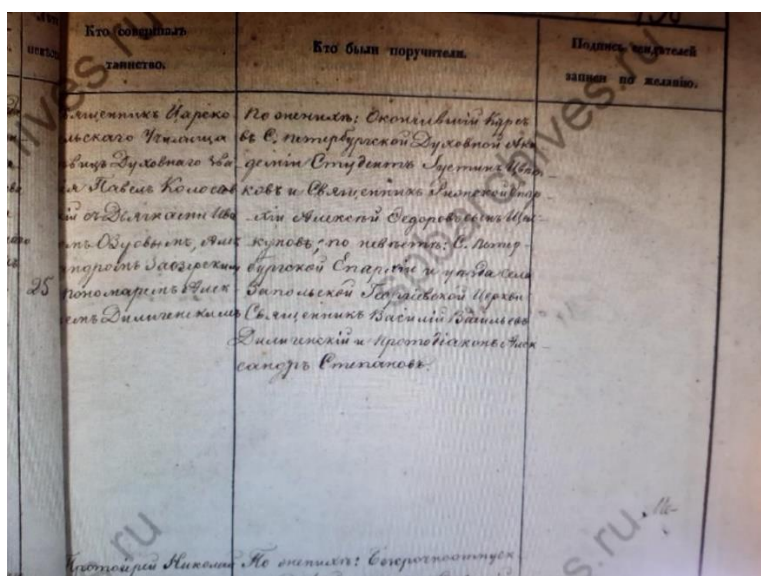 Кто совершалъ
таинство.
Кто были поручители.
Подпись свидѣтелей
записи по желанію.
25
вященникъ Царско
льскаго Училища
вицъ Духовнаго зва
я Павелъ Колосов
ій съ Діаконами Ива
мъ Озовымъ, Алек
ндромъ Заозерским
пономаремъ Алек
емъ Дилигенскимъ
По женихѣ: Окончившій Курсъ
въ С. петербургской Духовной Ака
деміи Студентъ Іустинъ
ковъ и Священникъ Рязской Епар
хіи Алексѣй Ѳедоровъ сынъ
куповъ; по невѣстѣ: С. Петер
бургской Епархіи и уѣзда Села
Запольской Церкви
Священникъ Василій Васильевъ
Дилигенскій и Протодіаконъ Алек
сандръ Степановъ.
Протоіерей Николай
По женихѣ: Безсрочноотпуск
spbarchives.ru